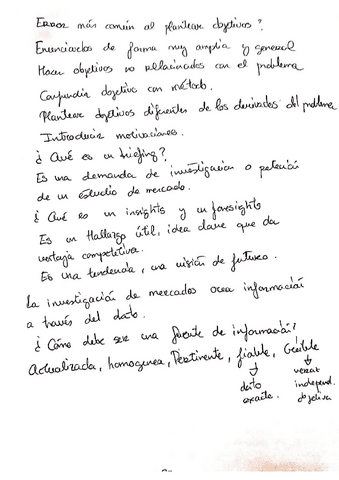 Error más común al plantear objetivos?
Enunciarlos de forma muy amplia y general
Hacer objetivos no relacionados con el problema
Confundir objetivo con método.
Plantear objetivos diferentes de los derivados del problema
Introducir motivaciones.
¿Qué es un briefing?
Es una demanda de investigación o petición
de un estudio de mercado.
¿Qué es un insights y un foresights
Es un Hallazgo útil, idea clave que da
ventaja competitiva.
Es una tendencia, una visión de futuro.
La investigación de mercados crea información
a través del dato.
¿Cómo debe ser una fuente de información?
Actualizada, homogenea, Pertinente, fiable, Creible
dato veraz
exacto. independ.
objetiva